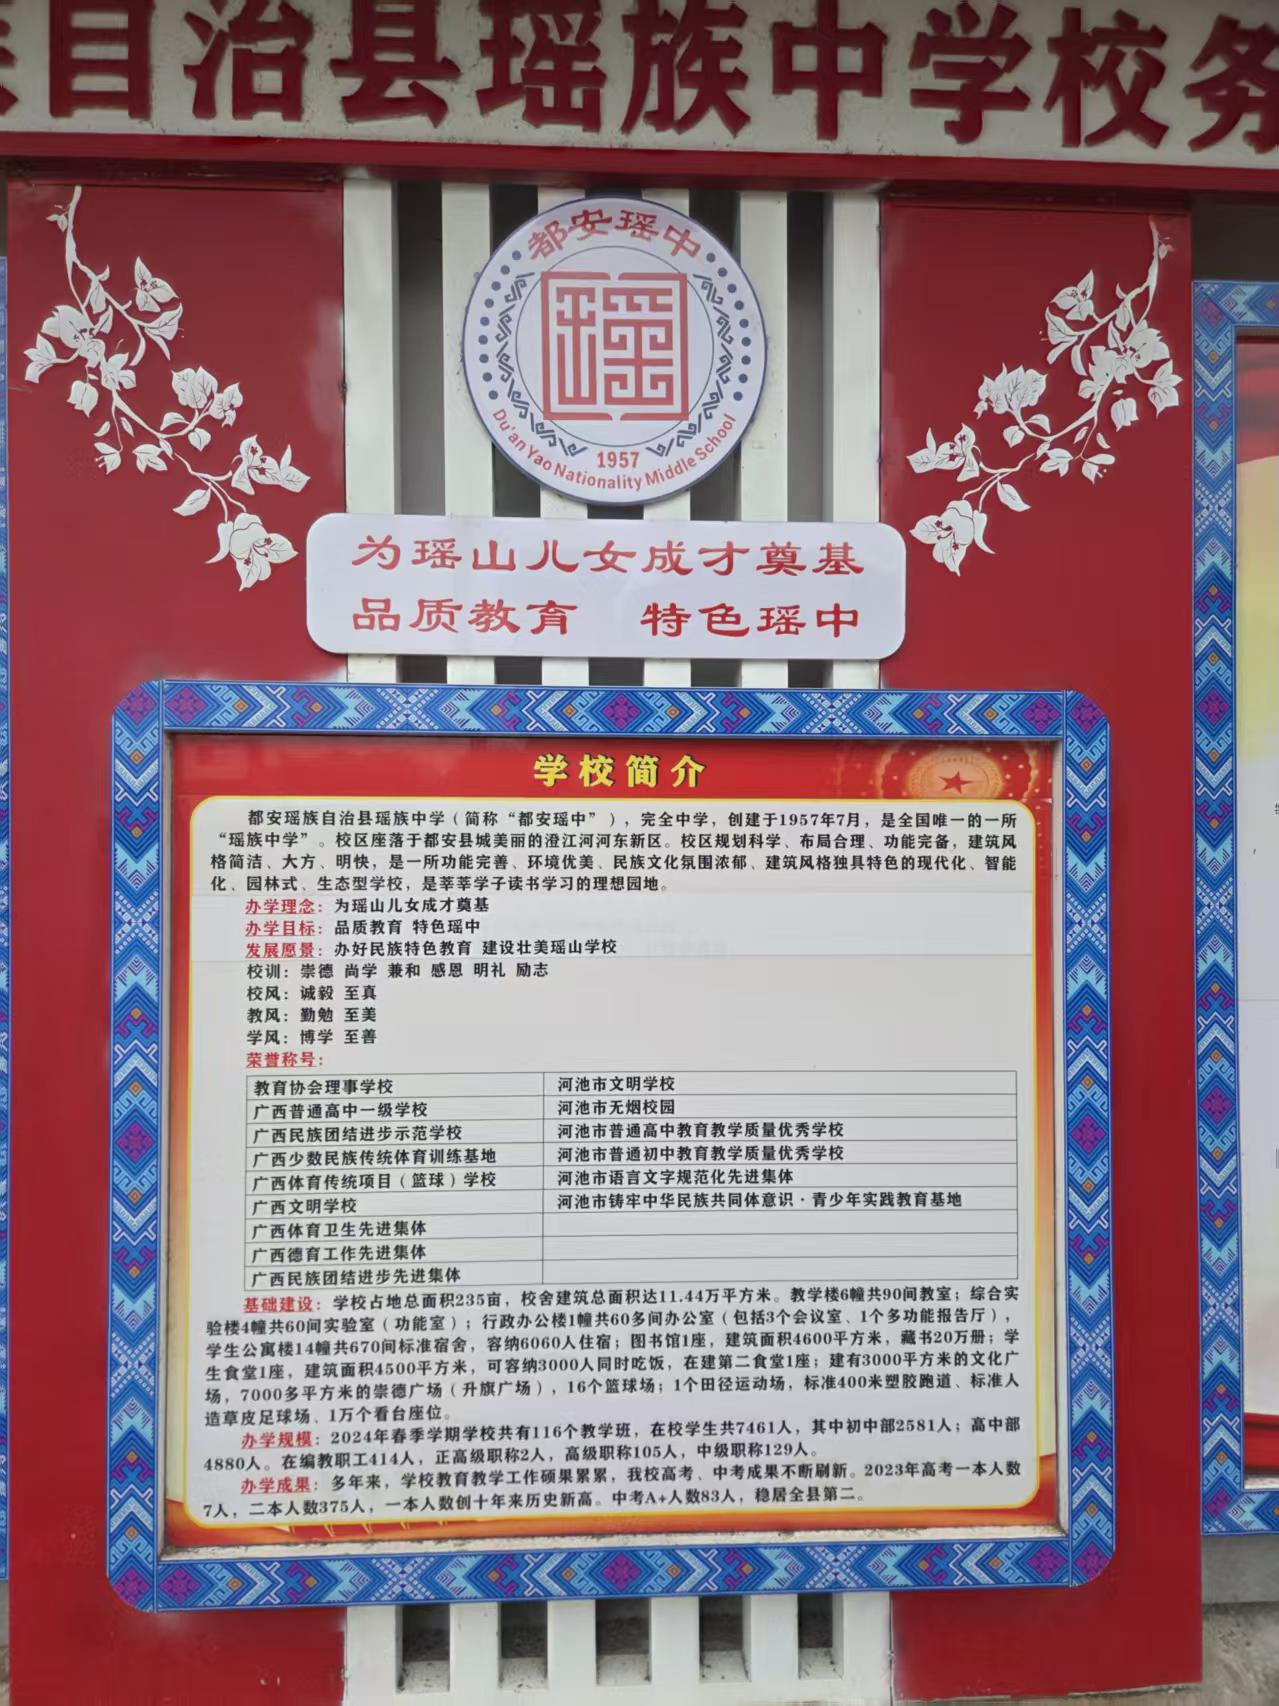 族自治县瑶族中学校务
都安瑶中
瑶
1957
Du'an Yao Nationality Middle School
为瑶山儿女成才奠基
品质教育 特色瑶中
学校简介
都安瑶族自治县瑶族中学（简称“都安瑶中”），完全中学，创建于1957年7月，是全国唯一的一所
“瑶族中学”。校区座落于都安县城美丽的澄江河河东新区。校区规划科学、布局合理、功能完备，建筑风
格简洁、大方、明快，是一所功能完善、环境优美、民族文化氛围浓郁、建筑风格独具特色的现代化、智能
化、园林式、生态型学校，是莘莘学子读书学习的理想园地。
办学理念：为瑶山儿女成才奠基
办学目标：品质教育 特色瑶中
发展愿景：办好民族特色教育 建设壮美瑶山学校
校训：崇德 尚学 兼和 感恩 明礼 励志
校风：诚毅 至真
教风：勤勉 至美
学风：博学 至善
荣誉称号：
教育协会理事学校 河池市文明学校
广西普通高中一级学校 河池市无烟校园
广西民族团结进步示范学校 河池市普通高中教育教学质量优秀学校
广西少数民族传统体育训练基地 河池市普通初中教育教学质量优秀学校
广西体育传统项目（篮球）学校 河池市语言文字规范化先进集体
广西文明学校 河池市铸牢中华民族共同体意识·青少年实践教育基地
广西体育卫生先进集体
广西德育工作先进集体
广西民族团结进步先进集体
基础建设：学校占地总面积235亩，校舍建筑总面积达11.44万平方米。教学楼6幢共90间教室；综合实
验楼4幢共60间实验室（功能室）；行政办公楼1幢共60多间办公室（包括3个会议室、1个多功能报告厅），
学生公寓楼14幢共670间标准宿舍，容纳6060人住宿；图书馆1座，建筑面积4600平方米，藏书20万册；学
生食堂1座，建筑面积4500平方米，可容纳3000人同时吃饭，在建第二食堂1座；建有3000平方米的文化广
场，7000多平方米的崇德广场（升旗广场），16个篮球场；1个田径运动场，标准400米塑胶跑道、标准人
造草皮足球场、1万个看台座位。
办学规模：2024年春季学期学校共有116个教学班，在校学生共7461人，其中初中部2581人；高中部
4880人。在编教职工414人，正高级职称2人，高级职称105人，中级职称129人。
办学成果：多年来，学校教育教学工作硕果累累，我校高考、中考成果不断刷新。2023年高考一本人数
7人，二本人数375人，一本人数创十年来历史新高。中考A+人数83人，稳居全县第二。